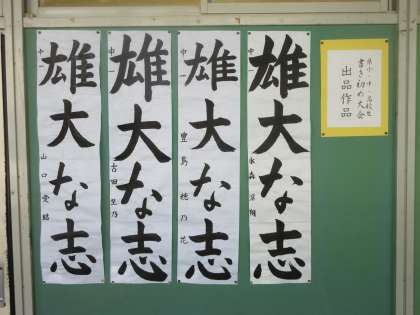 県小・中・高校生
書き初め大会
出品作品
雄大な志
中一
雄大な志
中一 豊島 穂乃花
雄大な志
中一 古田 里乃
雄大な志
中一 山口 愛結